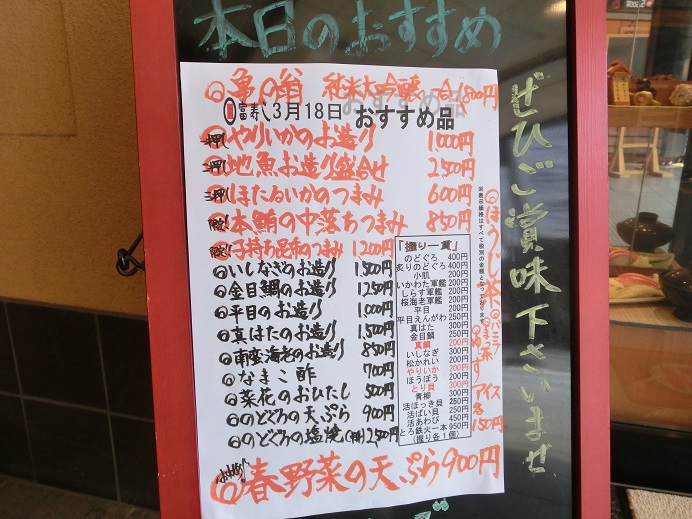 本日のおすすめ
亀の翁 純米大吟醸 一合 1,800円
富寿し 3月18日 おすすめ品
押し やりいかのお造り 1000円
押し 地魚お造り盛合せ 2500円
押し ほたるいかのつまみ 600円
限定! 本鮪の中落ちつまみ 850円
限定! 子持ち昆布のつまみ 1200円
いしなぎのお造り 1,500円
金目鯛のお造り 1250円
平目のお造り 1,000円
真はたのお造り 1,500円
南蛮海老のお造り 850円
なまこ酢 700円
菜花のおひたし 500円
のどぐろの天ぷら 900円
のどぐろの塩焼 2,500円
春野菜の天ぷら 900円
「握り一貫」
のどぐろ 400円
炙りのどぐろ 400円
小肌 200円
いかわた軍艦 200円
しらす軍艦 200円
桜海老軍艦 200円
平目 200円
平目えんがわ 250円
真はた 300円
金目鯛 250円
真鯛 200円
いしなぎ 300円
松かれい 200円
やりいか 200円
ほうぼう 200円
とり貝 300円
青柳 300円
活ほっき貝 250円
活ばい貝 250円
活あわび 450円
とろ鉄火一本 950円
(握り各1個)
※表示価格はすべて税別の金額となっております
ほうじ茶
バニラ
抹茶
ゆず
アイス
各
150円
ぜひご賞味下さいませ